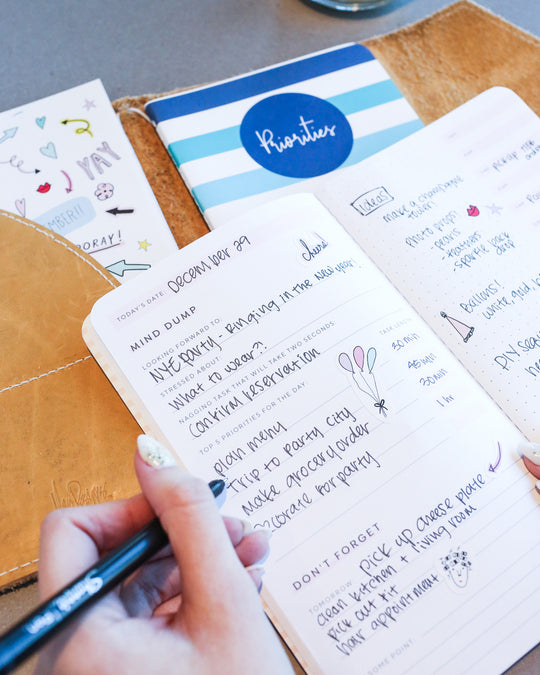 Priorities
YAY
HOORAY!
TODAY'S DATE december 29
cheers
MIND DUMP
LOOKING FORWARD TO:
NYE party - Ringing in the New year!
STRESSED ABOUT:
What to wear?!
NAGGING TASK THAT WILL TAKE TWO SECONDS:
confirm reservation
TOP 5 PRIORITIES FOR THE DAY
TASK LENGTH
plan menu 30 min
Trip to party city 45 min
Make grocery order 30 min
decorate for party 1 hr
DON'T FORGET
pick up cheese plate
TOMORROW
clean kitchen + living room
pick out fit
hair appointment
SOME POINT:
Ideas
make a champagne
tower
photo props
sparkle back
drop
pick up
Balloons!
white, gold,
DIY